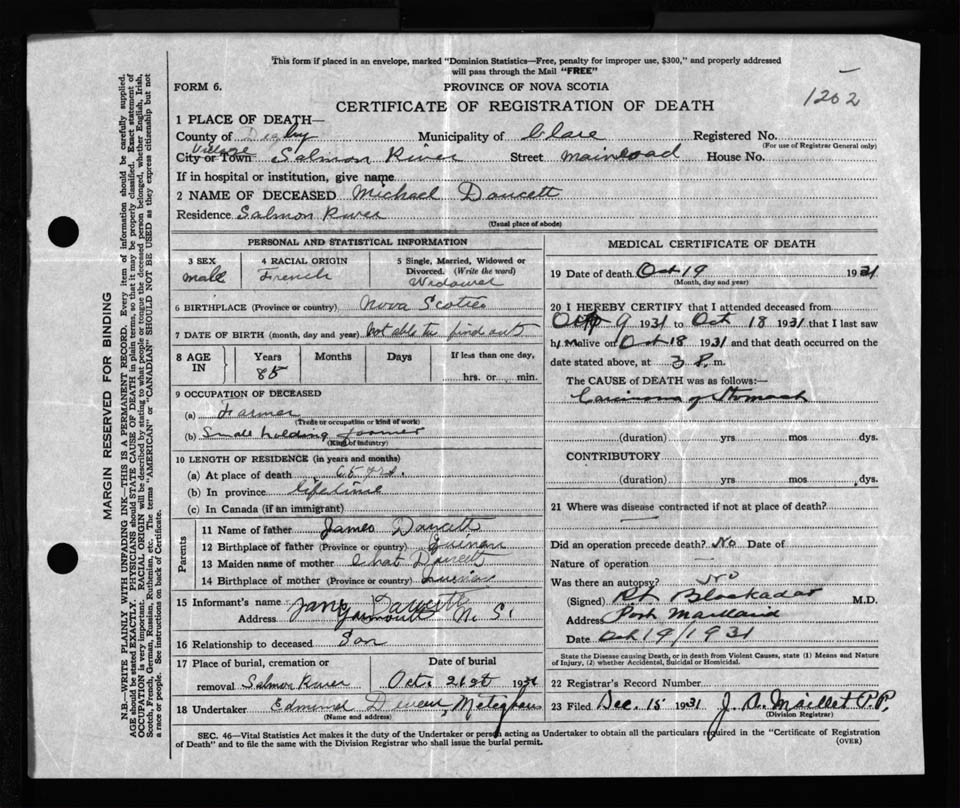 This form if placed in an envelope, marked "Dominion Statistics—Free, penalty for improper use, $300," and properly addressed
will pass through the Mail "FREE"
FORM 6.
PROVINCE OF NOVA SCOTIA
1202
CERTIFICATE OF REGISTRATION OF DEATH
1 PLACE OF DEATH—
County of Digby Municipality of Clare Registered No.
(For use of Registrar General only)
Village
City or Town Salmon River Street main road House No.
If in hospital or institution, give name
2 NAME OF DECEASED Michael Doucett
Residence Salmon River
(Usual place of abode)
PERSONAL AND STATISTICAL INFORMATION
3 SEX
male
4 RACIAL ORIGIN
French
5 Single, Married, Widowed or
Divorced. (Write the word)
Widower
6 BIRTHPLACE (Province or country) Nova Scotia
7 DATE OF BIRTH (month, day and year) Not able to find out
8 AGE
IN
Years
85
Months
Days
If less than one day,
hrs. or min.
9 OCCUPATION OF DECEASED
(a) Farmer
(Trade or occupation or kind of work)
(b) Small holding farmer
(Kind of industry)
10 LENGTH OF RESIDENCE (in years and months)
(a) At place of death 65 yrs.
(b) In province lifetime
(c) In Canada (if an immigrant)
Parents
11 Name of father James Doucett
12 Birthplace of father (Province or country) Quinan
13 Maiden name of mother Doucett
14 Birthplace of mother (Province or country) Quinan
15 Informant's name Doucett
Address Yarmouth N. S.
16 Relationship to deceased Son
17 Place of burial, cremation or
removal Salmon River
Date of burial
Oct. 21st 1931
18 Undertaker Meteghan
(Name and address)
MEDICAL CERTIFICATE OF DEATH
19 Date of death Oct 19 1931
(Month, day and year)
20 I HEREBY CERTIFY that I attended deceased from
Oct 9 1931 to Oct 18 1931 that I last saw
him alive on Oct 18 1931 and that death occurred on the
date stated above, at 3 P. m.
The CAUSE of DEATH was as follows:—
Carcinoma of Stomach
(duration) yrs mos dys.
CONTRIBUTORY
(duration) yrs mos dys.
21 Where was disease contracted if not at place of death?
Did an operation precede death? No Date of
Nature of operation
Was there an autopsy? No
(Signed) Blackadar M.D.
Address Port Maitland
Date Oct 19/1931
State the Disease causing Death, or in death from Violent Causes, state (1) Means and
Nature of Injury, (2) whether Accidental, Suicidal or Homicidal.
22 Registrar's Record Number
23 Filed Dec. 15 1931 Maillet P.P.
(Division Registrar)
SEC. 46—Vital Statistics Act makes it the duty of the Undertaker or person acting as Undertaker to obtain all the particulars required in the "Certificate of Registration
of Death" and to file the same with the Division Registrar who shall issue the burial permit.
(OVER)
MARGIN RESERVED FOR BINDING
N.B.—WRITE PLAINLY WITH UNFADING INK—THIS IS A PERMANENT RECORD. Every item of information should be carefully supplied.
AGE should be stated EXACTLY. PHYSICIANS should STATE CAUSE OF DEATH in plain terms, so that it may be properly classified. Exact statement of
OCCUPATION is very important. RACIAL ORIGIN will be described by stating to what people or race the deceased person belonged, whether English, Irish,
Scotch, French, German, Russian, Ruthenian, etc. The terms "AMERICAN" or "CANADIAN" SHOULD NOT BE USED as they express citizenship but not
a race or people. See instructions on back of Certificate.